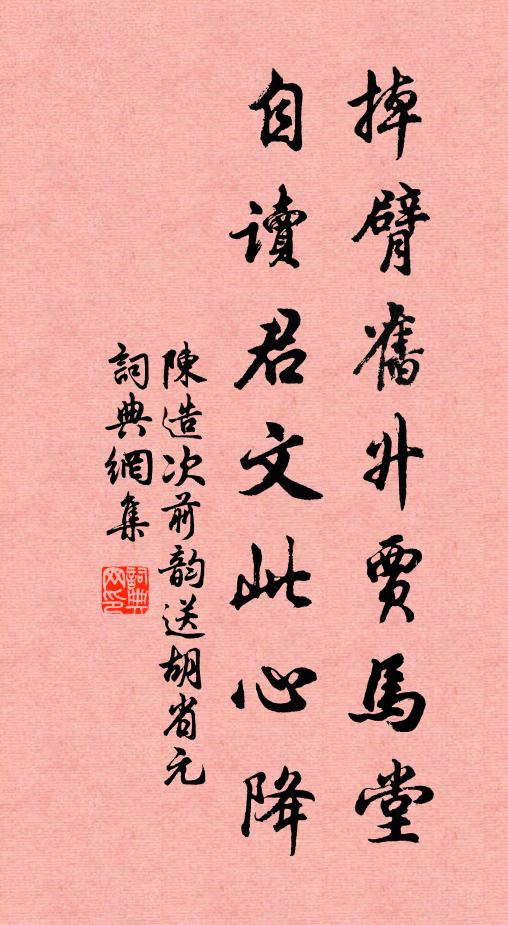 掉臂舊升賈馬堂
自讀君文此心降
陳造次前韵送胡省元
詞典網集
詞典
网印